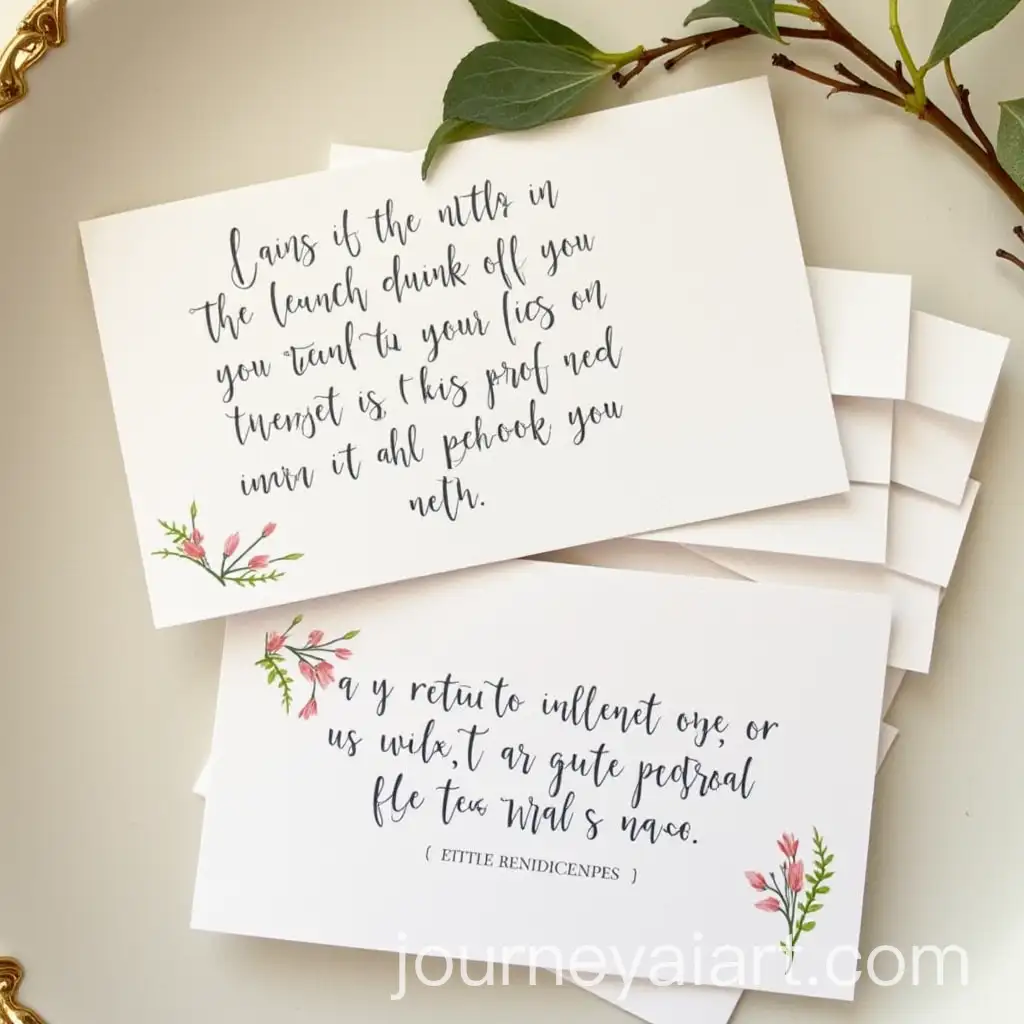 Lains if the nttls in
the leunch duink off you
you teenf tu your fics on
twenset is, t kis prof ned
inwrn it ahl pehook you
neth.
a y retuito inllenet oye, or
us wilx, t ar gute pedsroal
fle tews wral s nawo.
( ETITLE RENIDICENPES )
journeyaiart.com